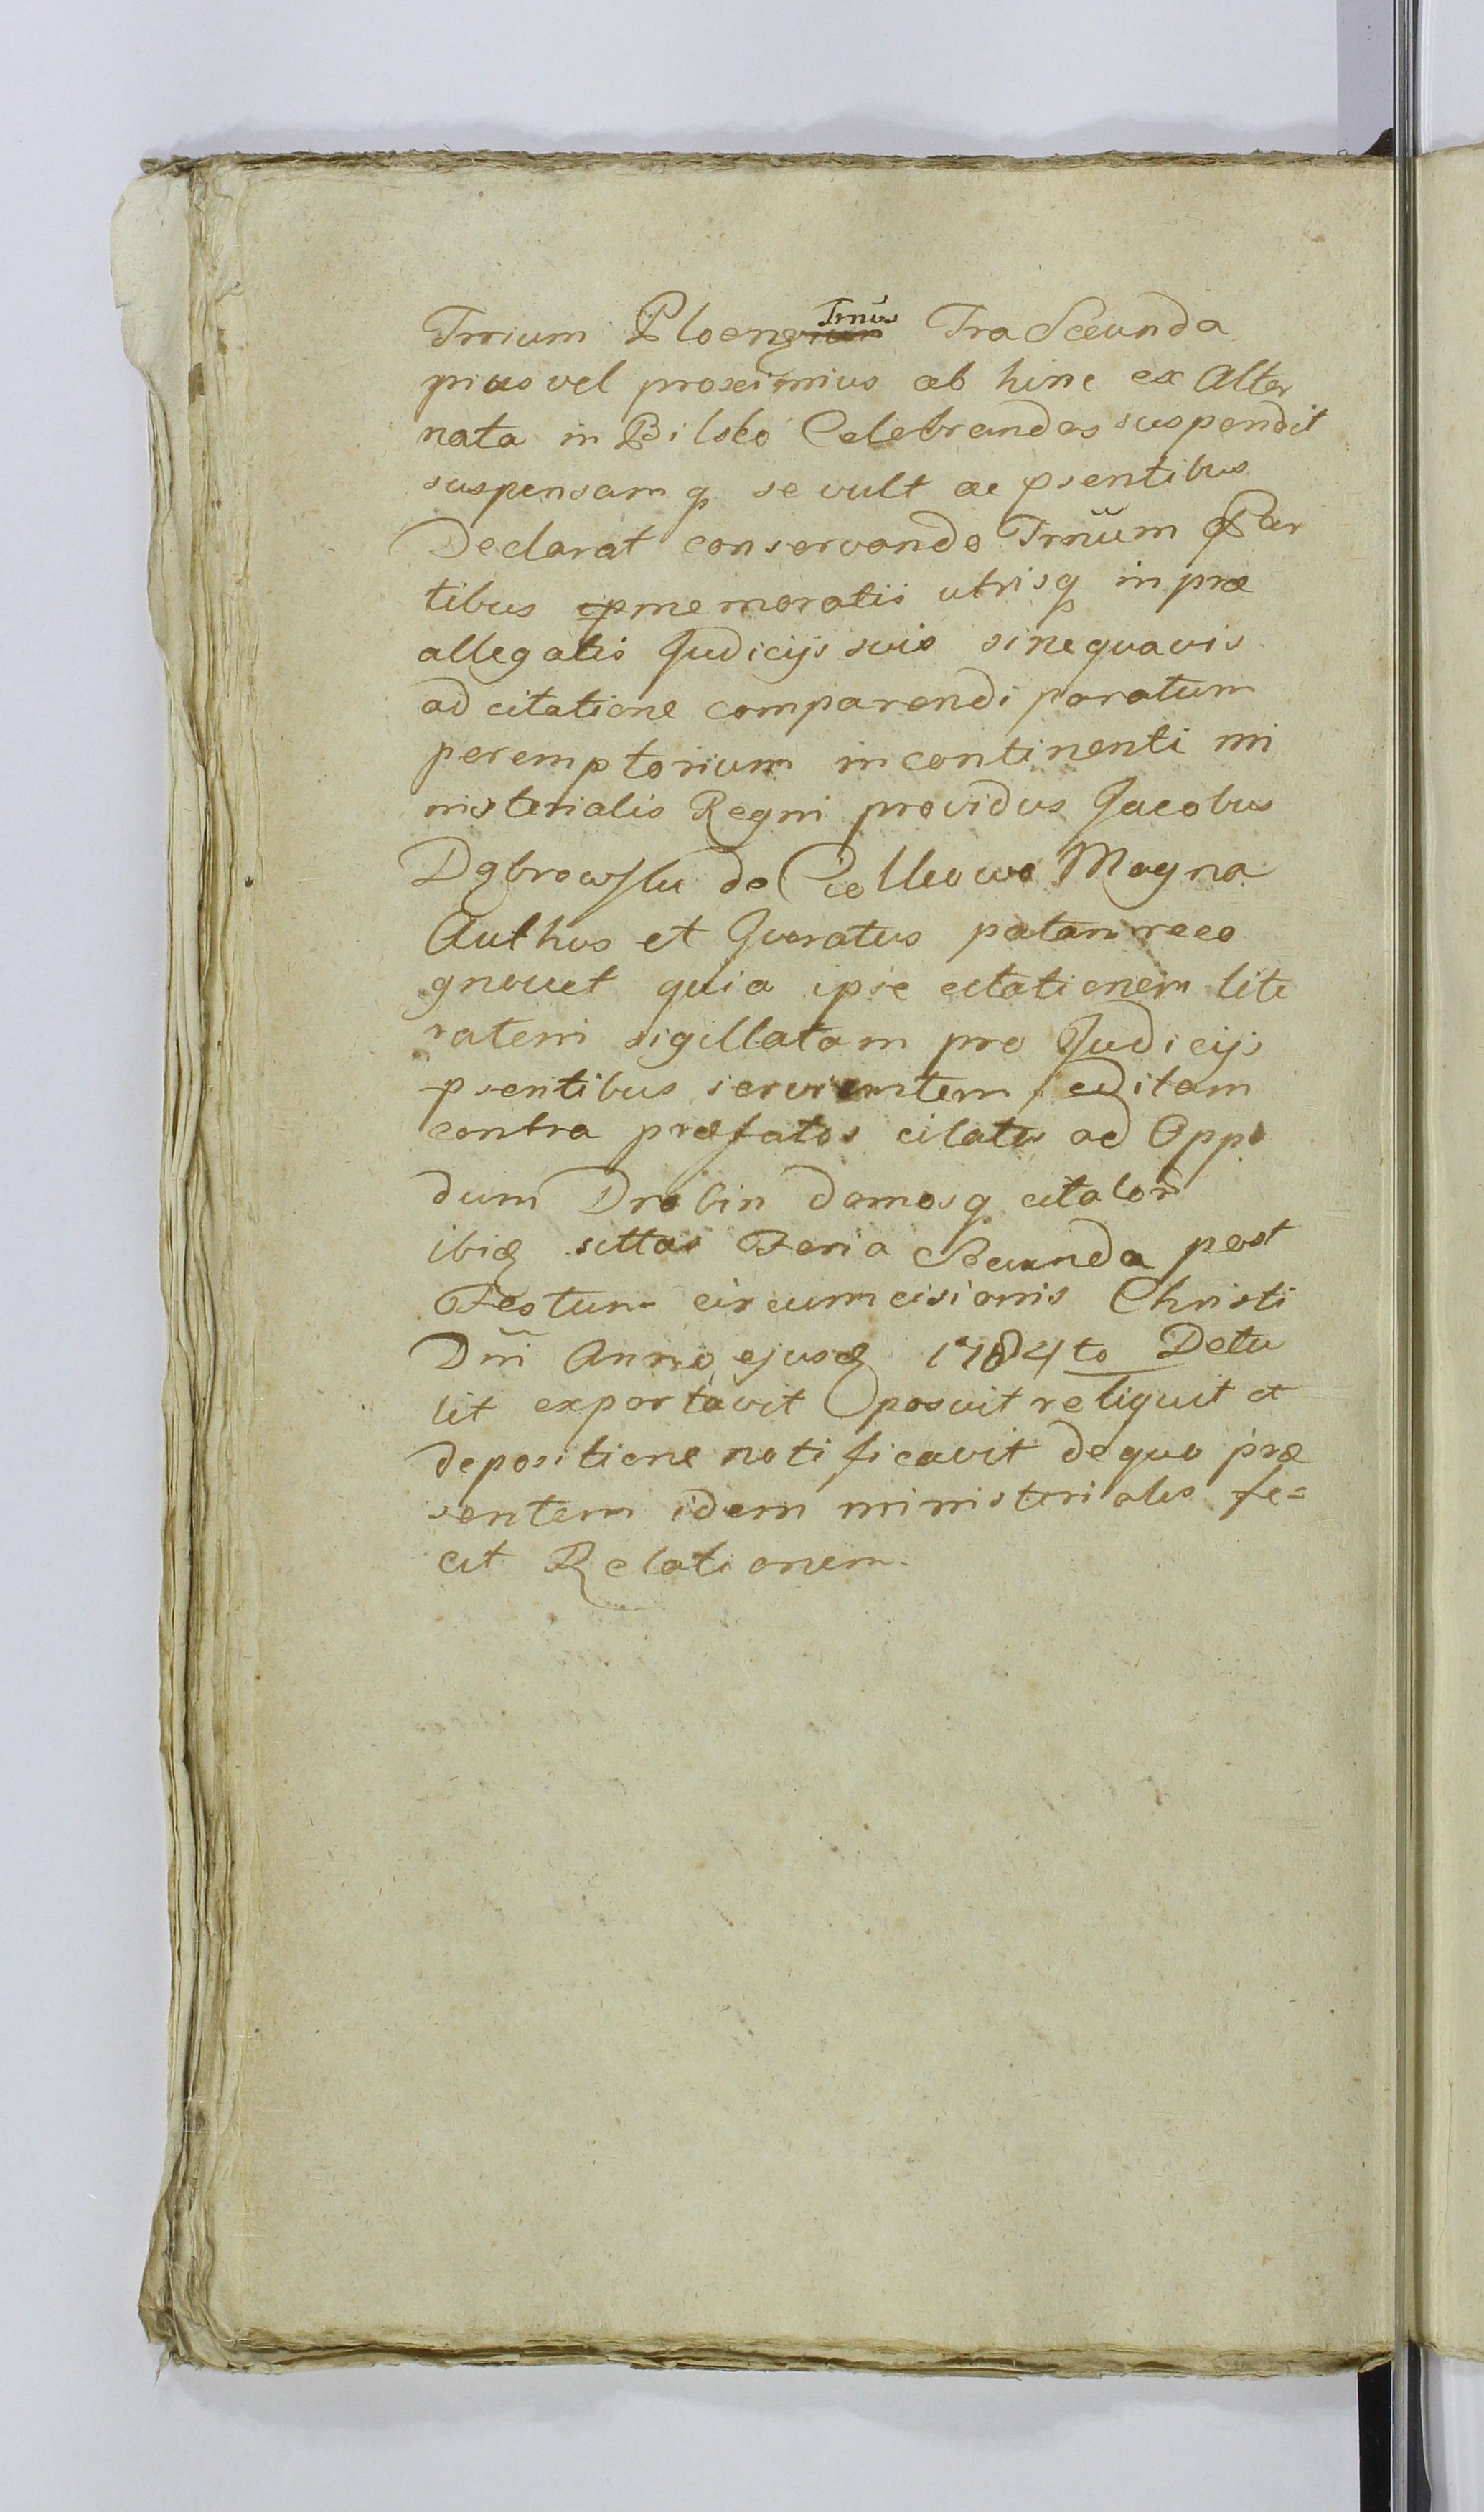 Trrium Plocen Trnüs Fra Secunda
pius vel proximius ab hinc ex Alter
nata in Bilsko Celebrandas suspendit
suspensam q se vult ac psentibus
Declarat conservando Trnüm Par
tibus pmemoratis utrisq in præ
allegatis Judicijs suis sine quavis
ad citatione comparendi paratum
peremptorium incontinenti mi
nisterialis Regni providus Jacobus
Dąbrowski de Magna
Authus et Juratus palam reco
gnovit quia ipse citationem lite
ratem sigillatam pro Judicijs
psentibus servientem editam
contra præfatos citatos ad Oppi
dum Drobin domosq citator
ibiq sittas Feria Secunda post
Festum circumcisionis Christi
Dni Anno ejusd 1784to Detu
lit exportavit posuit reliquit et
depositione notificavit de quo præ
sentem idem ministerialis fe=
cit Relationem.